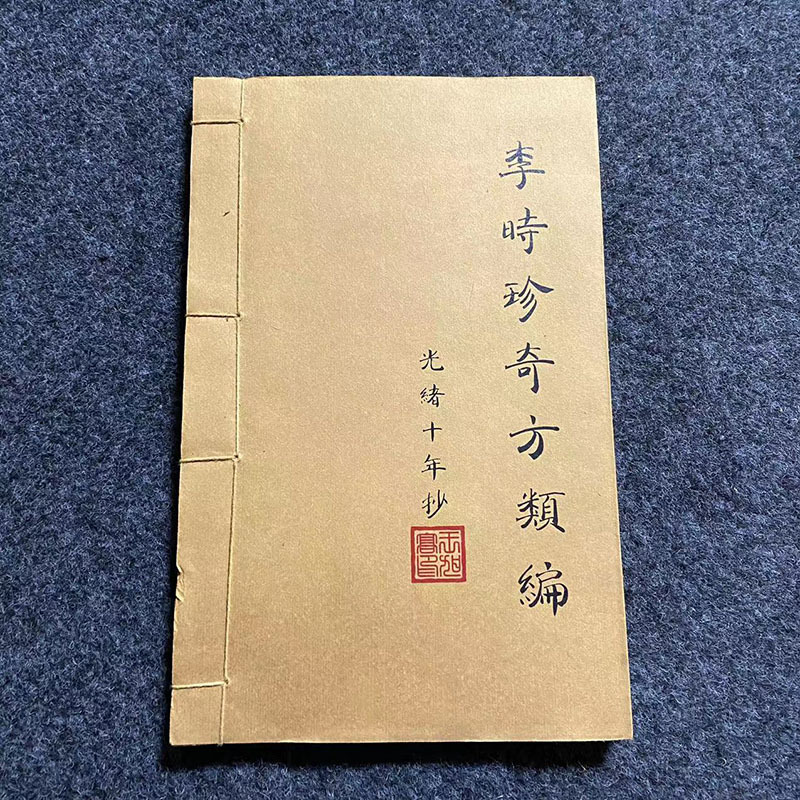 李時珍奇方類編
光緒十年抄